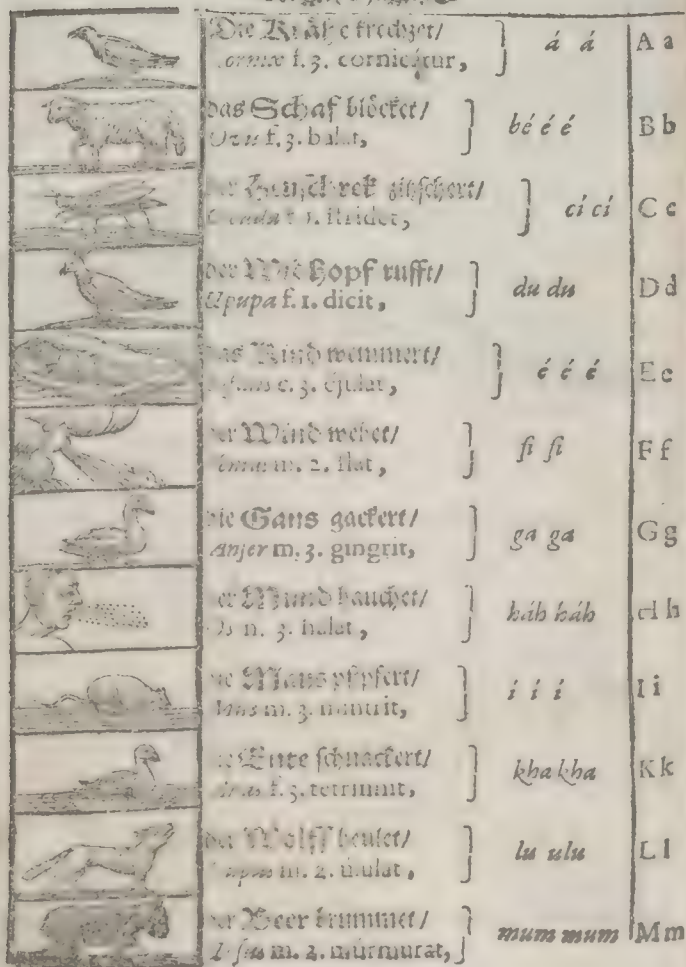 Die Krähe krechzet/
cornicatur,
á á
A a
das Schaf blöcket/
f. 3. balat,
bé é é
B b
zitschert/
stridet,
cí cí
C c
der Widhopf rufft/
Upupa f. 1. dicit,
du du
D d
das Kind wemmert/
c. 3. ejulat,
é é é
E e
Wind wehet/
m. 2. flat,
fi fi
F f
die Gans gackert/
Anser m. 3. gingrit,
ga ga
G g
Mund hauchet/
n. 3. halat,
háh háh
H h
Maus pfipfert/
Mus m. 3. mintrit,
í í í
I i
Ente schnackert/
f. 3. tetrinnit,
kha kha
K k
der Wolff heulet/
m. 2. ululat,
lu ulu
L l
der Beer brummet/
m. 2. murmurat,
mum mum
M m